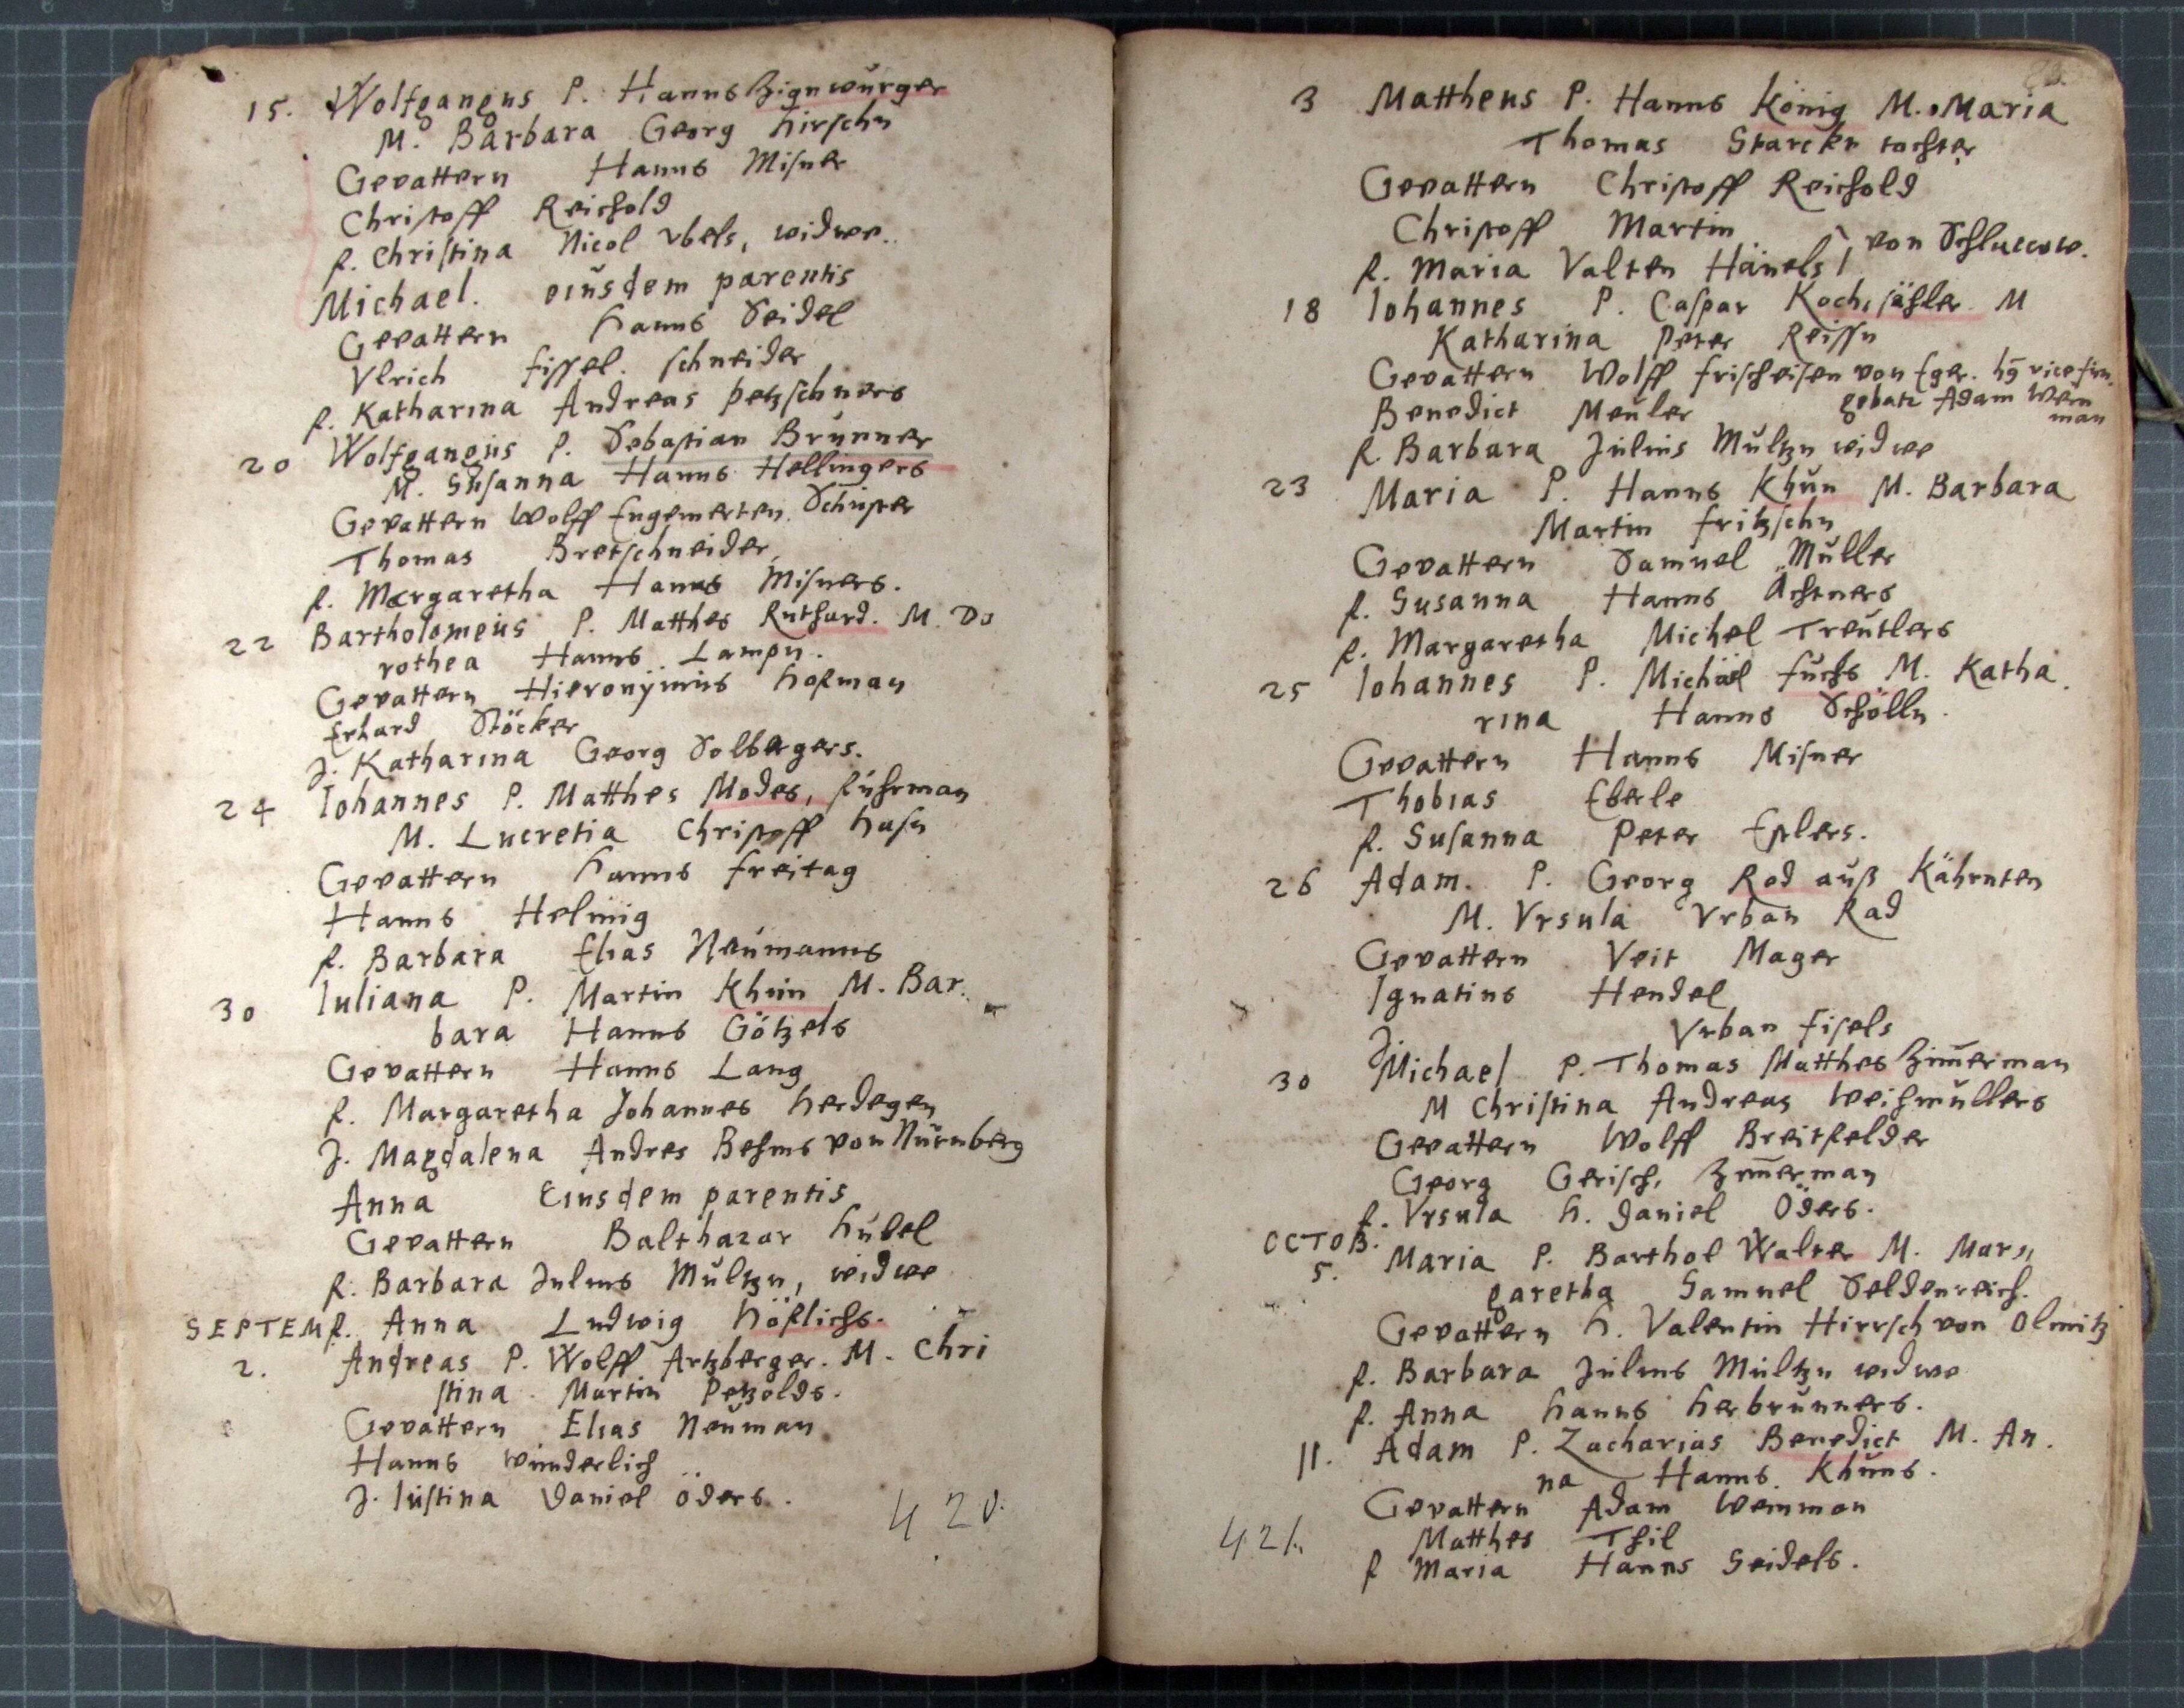 15. Wolfgangus P. Hanns Zignwürger
M. Barbara Georg Hirschn
Gevattern Hanns Misner
Christoff Reichold
f. Christina Nicol Vbels, widwe.
Michael. eiusdem parentis
Gevattern Hanns Seidel
Vlrich Fissel. schneider
f. Katharina Andreas Petzschners
20 Wolfgangus P. Sebastian Brunner
M. Susanna Hanns Hellingers
Gevattern Wolff Engemerten. Schuster
Thomas Bretschneider
f. Margaretha Hanns Misners.
22 Bartholomeus P. Matthes Ruthard. M. Do
rothea Hanns Lampn.
Gevattern Hieronymus Hofman
Erhard Stöcker
J. Katharina Georg Solbergers.
24 Iohannes P. Matthes Modes, fuhrman
M. Lucretia Christoff Hasn
Gevattern Hanns Freitag
Hanns Helmig
f. Barbara Elias Neumanns
30 Iuliana P. Martin Khun M. Bar.
bara Hanns Götzels
Gevattern Hanns Lang
f. Margaretha Johannes Herdegen
J. Magdalena Andres Behms von Nürnberg
Anna Eiusdem parentis
Gevattern Balthazar Hübel
f. Barbara Julius Mültzn, widwe
f. Anna Ludwig Höflichs.
SEPTEMB.
2. Andreas P. Wolff Artzberger. M. Chri
stina. Martin Petzolds.
Gevattern Elias Neuman
Hanns Wunderlich
J. Iustina Daniel Öders.
420.
83.
3 Mattheus P. Hanns König M. Maria
Thomas Starckn tochter
Gevattern Christoff Reichold
Christoff Martin
f. Maria Valten Hänels von Schlaccow.
18 Iohannes P. Caspar Koch, M
Katharina Peter Reissn
Gevattern Wolff Frischeisen von Eger.
gebatt Adam Wein
man
Benedict Meuler
f. Barbara Julius Mültzn widwe
23 Maria P. Hanns Khün M. Barbara
Martin Fritzschn
Gevattern Samuel Müller
f. Susanna Hanns Achtners
f. Margaretha Michel Treutlers
25 Iohannes P. Michael Fuchs M. Katha
rina Hanns Schölln.
Gevattern Hanns Misner
Thobias Eberle
f. Susanna Peter Eplers.
26 Adam. P. Georg Rod auß Kährnten
M. Vrsula Vrban Rad
Gevattern Veit Mager
Ignatius Hendel
J. Vrban Fisels
30 Michael P. Thomas Matthes Zim̄erman
M Christina Andreas Weismullers
Gevattern Wolff Breitfelder
Georg Gerisch, Zim̄erman
f. Vrsula H. Daniel Öders.
OCTOB.
5. Maria P. Barthol Walter M. Mar
garetha Samuel Seldenreich.
Gevattern H. Valentin Hirrsch von Olmitz
f. Barbara Julius Mültzn widwe
f. Anna Hanns Herbrunners.
11. Adam P. Zacharias Benedict M. An.
na Hanns Khuns.
Gevattern Adam Weinman
Matthes Thil
f Maria Hanns Seidels.
421.